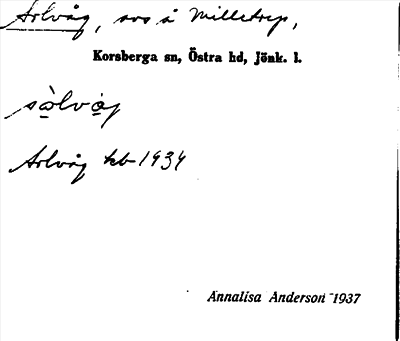 Solvåg, avs å Milletrp,
Korsberga sn, Östra hd, Jönk. l.
sòlvåg
Solvåg kb 1934
Annalisa Anderson 1937